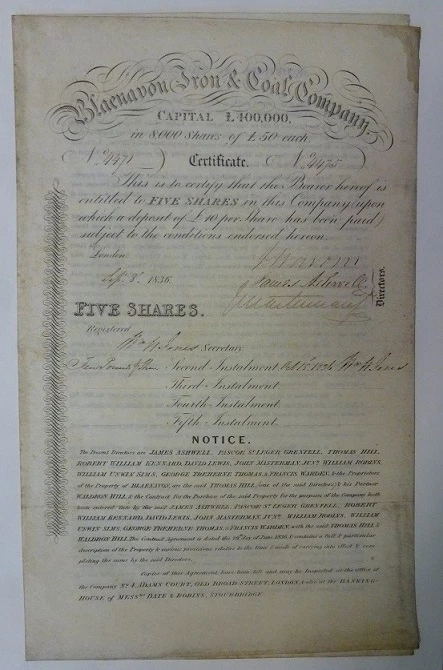 Blaenavon Iron & Coal Company.
CAPITAL £400,000,
in 8,000 Shares of £50 each.
N 24471 Certificate. N 24475
This is to certify that the Bearer hereof is
entitled to FIVE SHARES in this Company (upon
which a deposit of £10 per Share has been paid)
subject to the conditions endorsed hereon.
London
1836.
James Ashwell
Directors.
FIVE SHARES.
Registered
Wm W Jones Secretary
Second Instalment Wm W Jones
Third Instalment
Fourth Instalment
Fifth Instalment
NOTICE.
The Present Directors are JAMES ASHWELL, PASCOE ST LEGER GRENFELL, THOMAS HILL,
ROBERT WILLIAM KENNARD, DAVID LEWIS, JOHN MASTERMAN, JUNR. WILLIAM ROBINS,
WILLIAM UNWIN SIMS, GEORGE TREHERNE THOMAS, & FRANCIS WARDEN, & the Proprietors
of the Property of BLAENAVON, are the said THOMAS HILL, (one of the said Directors) & his Partner
WALDRON HILL, & the Contract for the Purchase of the said Property for the purposes of the Company hath
been entered into by the said JAMES ASHWELL, PASCOE ST LEGER GRENFELL, ROBERT
WILLIAM KENNARD, DAVID LEWIS, JOHN MASTERMAN, JUNR. WILLIAM ROBINS, WILLIAM
UNWIN SIMS, GEORGE TREHERNE THOMAS, & FRANCIS WARDEN, with the said THOMAS HILL &
WALDRON HILL. The Contract Agreement is dated the day of June 1836, & contains a full & particular
description of the Property & various provisions relative to the time & mode of carrying into effect & com-
pleting the same by the said Directors.
Copies of this Agreement have been left and may be Inspected at the office of
the Company No. 4 ADAMS COURT, OLD BROAD STREET, LONDON, & also at the BANKING-
HOUSE of MESSRS BATE & ROBINS, STOURBRIDGE